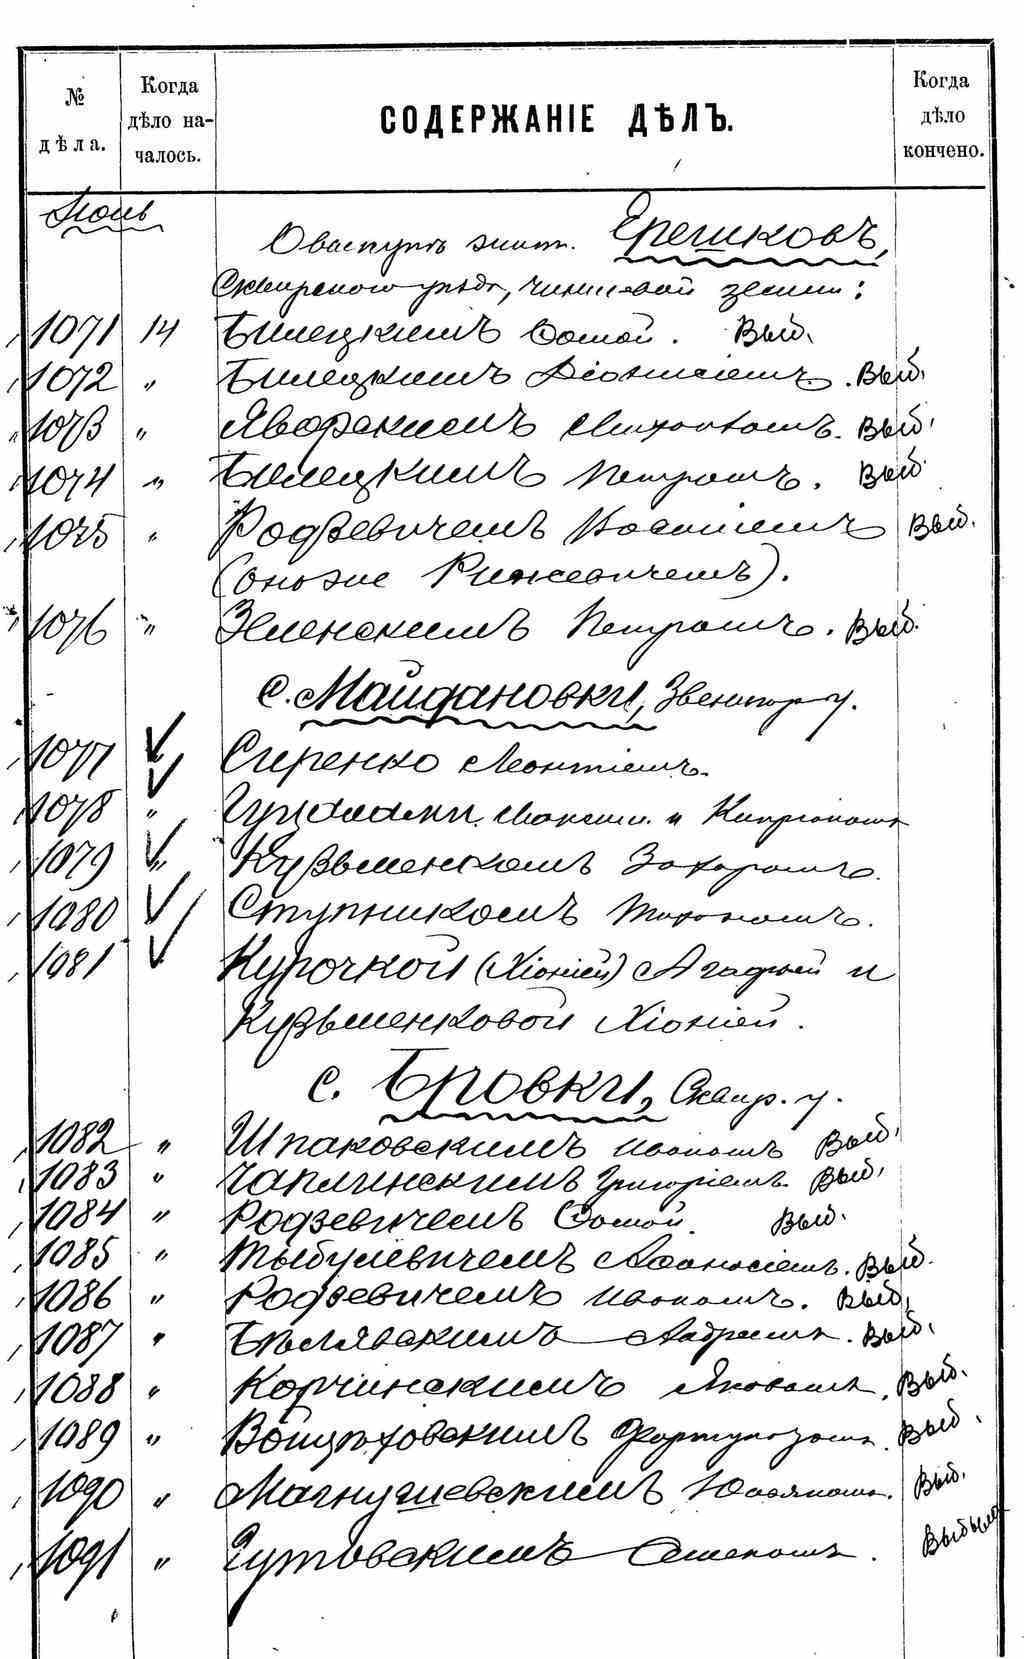 № дѣла.
Когда дѣло началось.
СОДЕРЖАНІЕ ДѢЛЪ.
Когда дѣло кончено.
О выступл. жит. Ерешковъ,
Сквирскаго уѣзда, чиншевой земли:
1071 14 Билецкимъ Ѳомой. Выб.
1072 " Билецкимъ Діонисіемъ. Выб.
1073 " Яворскимъ Михаиломъ. Выб.
1074 " Билецкимъ Петромъ. Выб.
1075 " Родзевичемъ Выб.
(онъ же Рижевичемъ).
1076 " Зеленскимъ Петромъ. Выб.
С. Майдановки, Звенигор. у.
1077 " Сиренко Леонтіемъ.
1078 " Максим. и Кипріаномъ
1079 " Кузьменкомъ Захаромъ.
1080 Ступникомъ
1081 Курочкой (Хіоніей) Агафьей и
Кузьменковой Хіоніей.
С. Бровки, Сквир. у.
1082 " Шпаковскимъ Иваномъ Выб.
1083 " Чаплинскимъ Григоріемъ. Выб.
1084 " Родзевичемъ Ѳомой. Выб.
1085 " Тыбулевичемъ Афанасіемъ. Выб.
1086 " Родзевичемъ Иваномъ. Выб.
1087 " Бѣлявскимъ Выб.
1088 " Корчинскимъ Яковомъ. Выб.
1089 " Войцѣховскимъ Фортунатомъ. Выб.
1090 " Магнушевскимъ Юльяномъ. Выб.
1091 " Гутовскимъ Выбыло